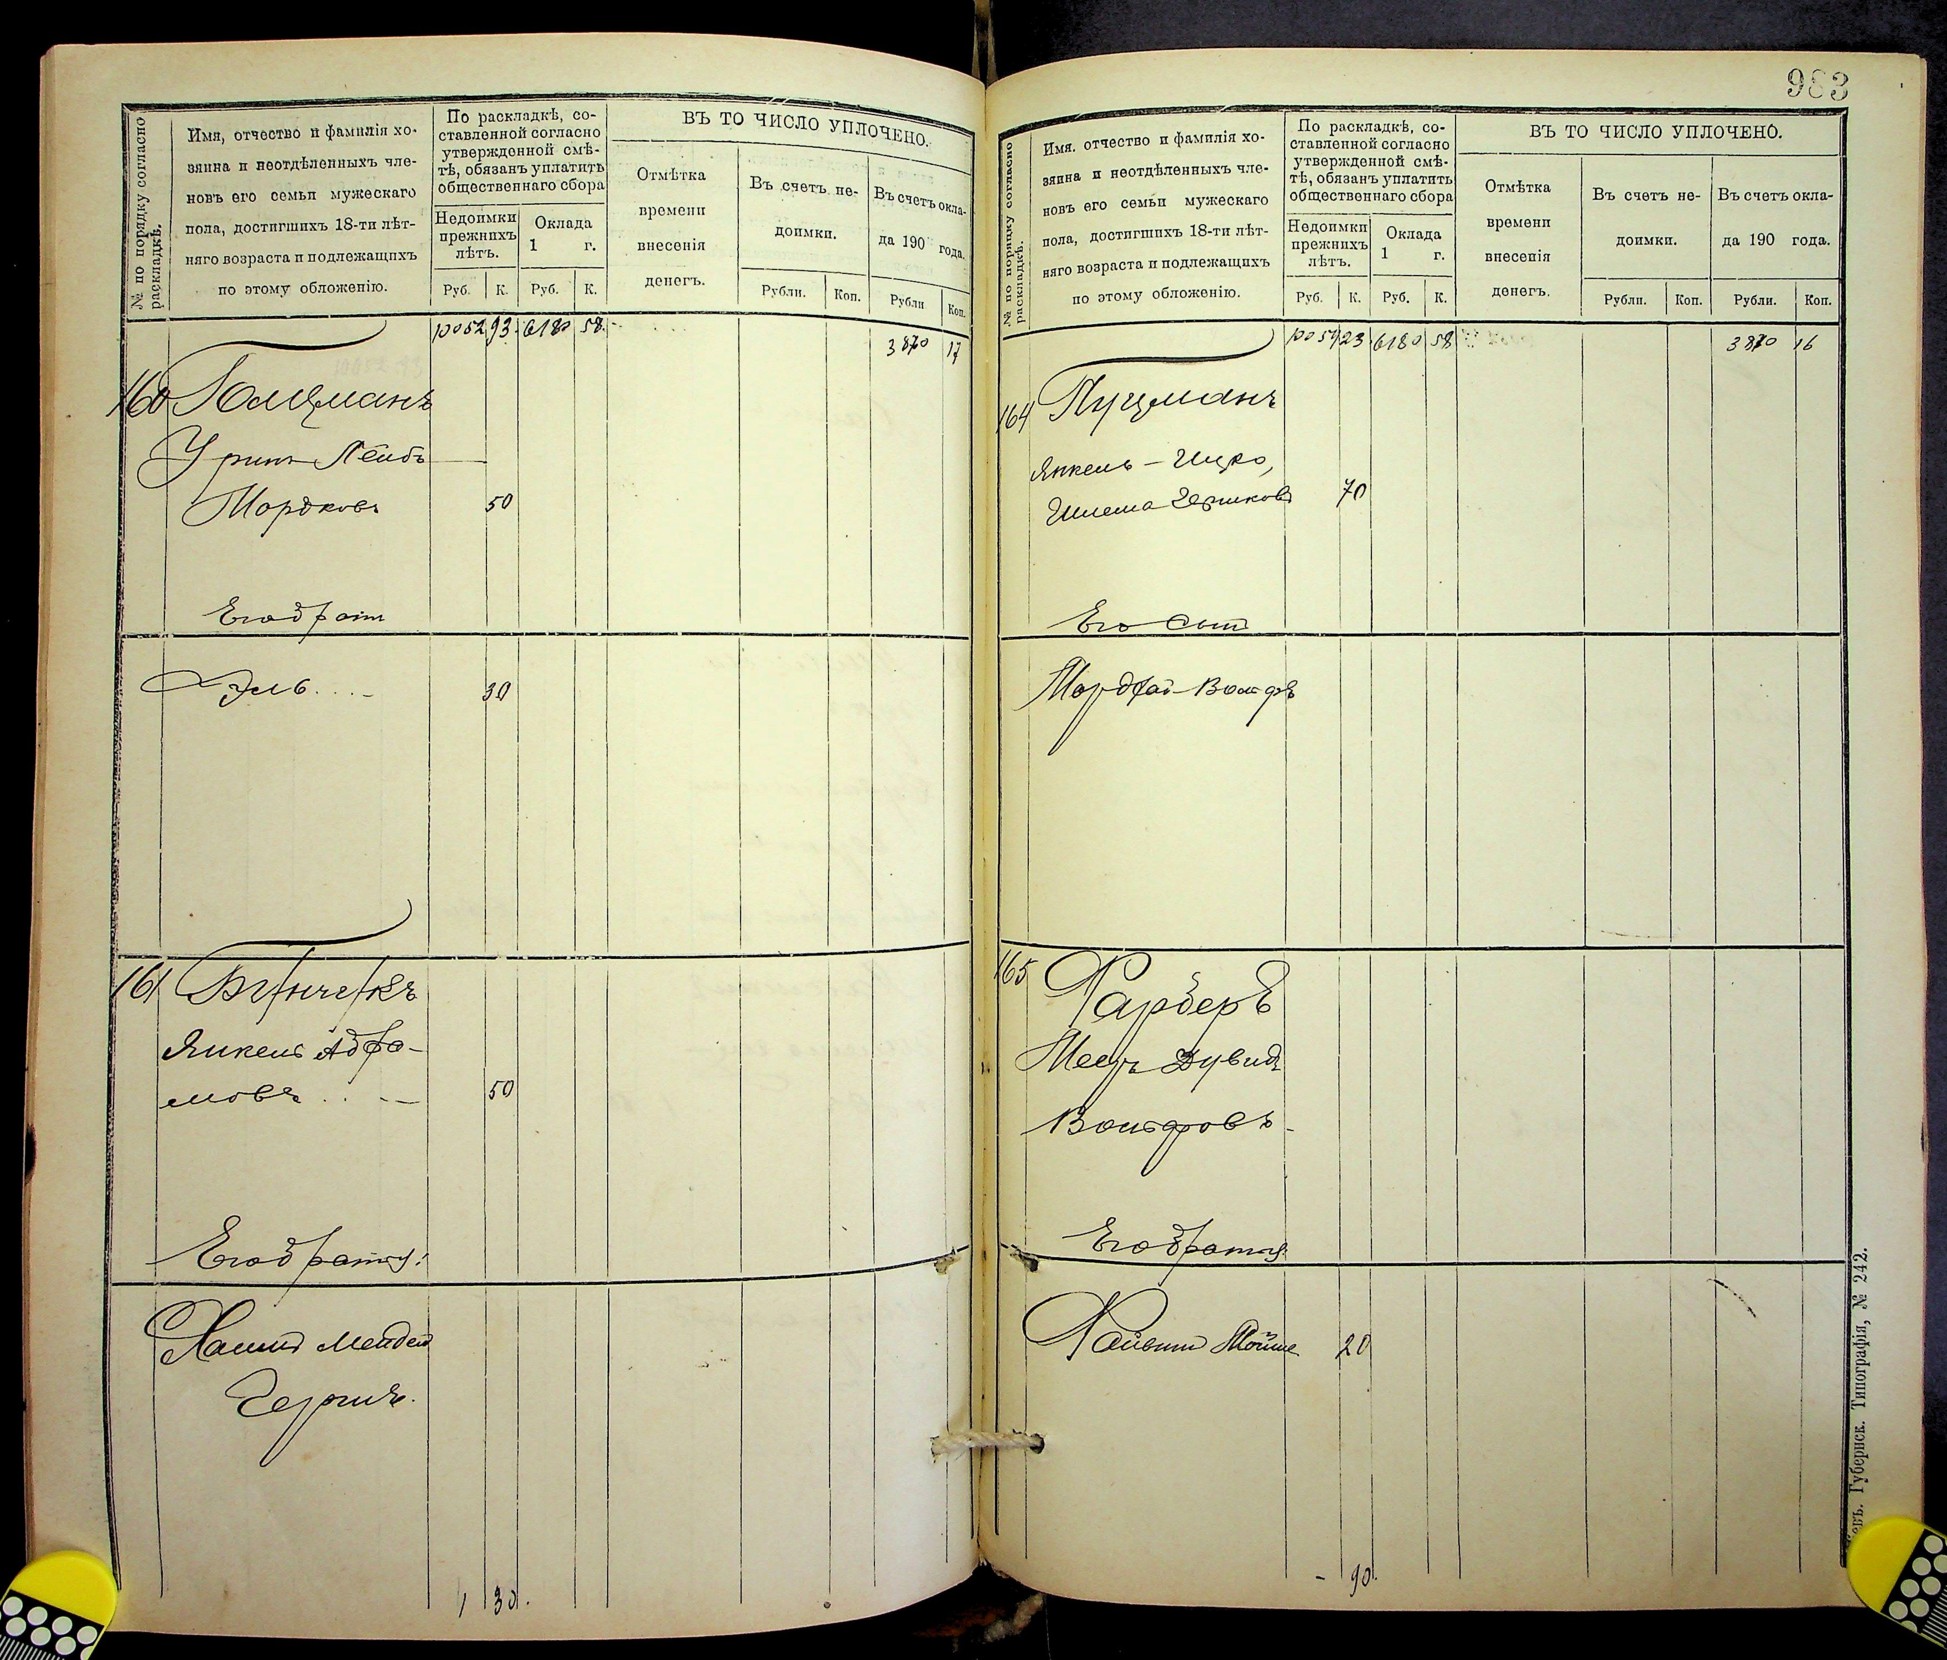 983
№ по порядку согласно раскладкѣ.
Имя, отчество и фамилія хо-
зяина и неотдѣленныхъ чле-
новъ его семьи мужескаго
пола, достигшихъ 18-ти лѣт-
няго возраста и подлежащихъ
по этому обложенію.
По раскладкѣ, со-
ставленной согласно
утвержденной смѣ-
тѣ, обязанъ уплатить
общественнаго сбора
Недоимки
прежнихъ
лѣтъ.
Оклада
1 г.
Руб. К. Руб. К.
ВЪ ТО ЧИСЛО УПЛОЧЕНО.
Отмѣтка
времени
внесенія
денегъ.
Въ счетъ не-
доимки.
Въ счетъ окла-
да 190 года.
Рубли. Коп. Рубли Коп.
10052 93 6180 58
3870 17
160
Урин Лейбъ
Мордковъ 50
Его братъ
Эль 30
161
Янкель Абра-
мовъ 50
Его братья:
Гершъ.
1 30
№ по порядку согласно раскладкѣ.
Имя. отчество и фамилія хо-
зяина и неотдѣленныхъ чле-
новъ его семьи мужескаго
пола, достигшихъ 18-ти лѣт-
няго возраста и подлежащихъ
по этому обложенію.
По раскладкѣ, со-
ставленной согласно
утвержденной смѣ-
тѣ, обязанъ уплатить
общественнаго сбора
Недоимки
прежнихъ
лѣтъ.
Оклада
1 г.
Руб. К. Руб. К.
ВЪ ТО ЧИСЛО УПЛОЧЕНО.
Отмѣтка
времени
внесенія
денегъ.
Въ счетъ не-
доимки.
Въ счетъ окла-
да 190 года.
Рубли. Коп. Рубли. Коп.
6180 58
3870 16
164 Пуцманъ
Янкель-Ицко,
Шлема Гершковъ 70
Его сынъ
Мордхай-Вольфъ
165 Фарберъ
Мееръ Дувидъ
Вольфовъ
Его братья
Файвиш Мойше 20
- 90
Губернск. Типографія, № 242.